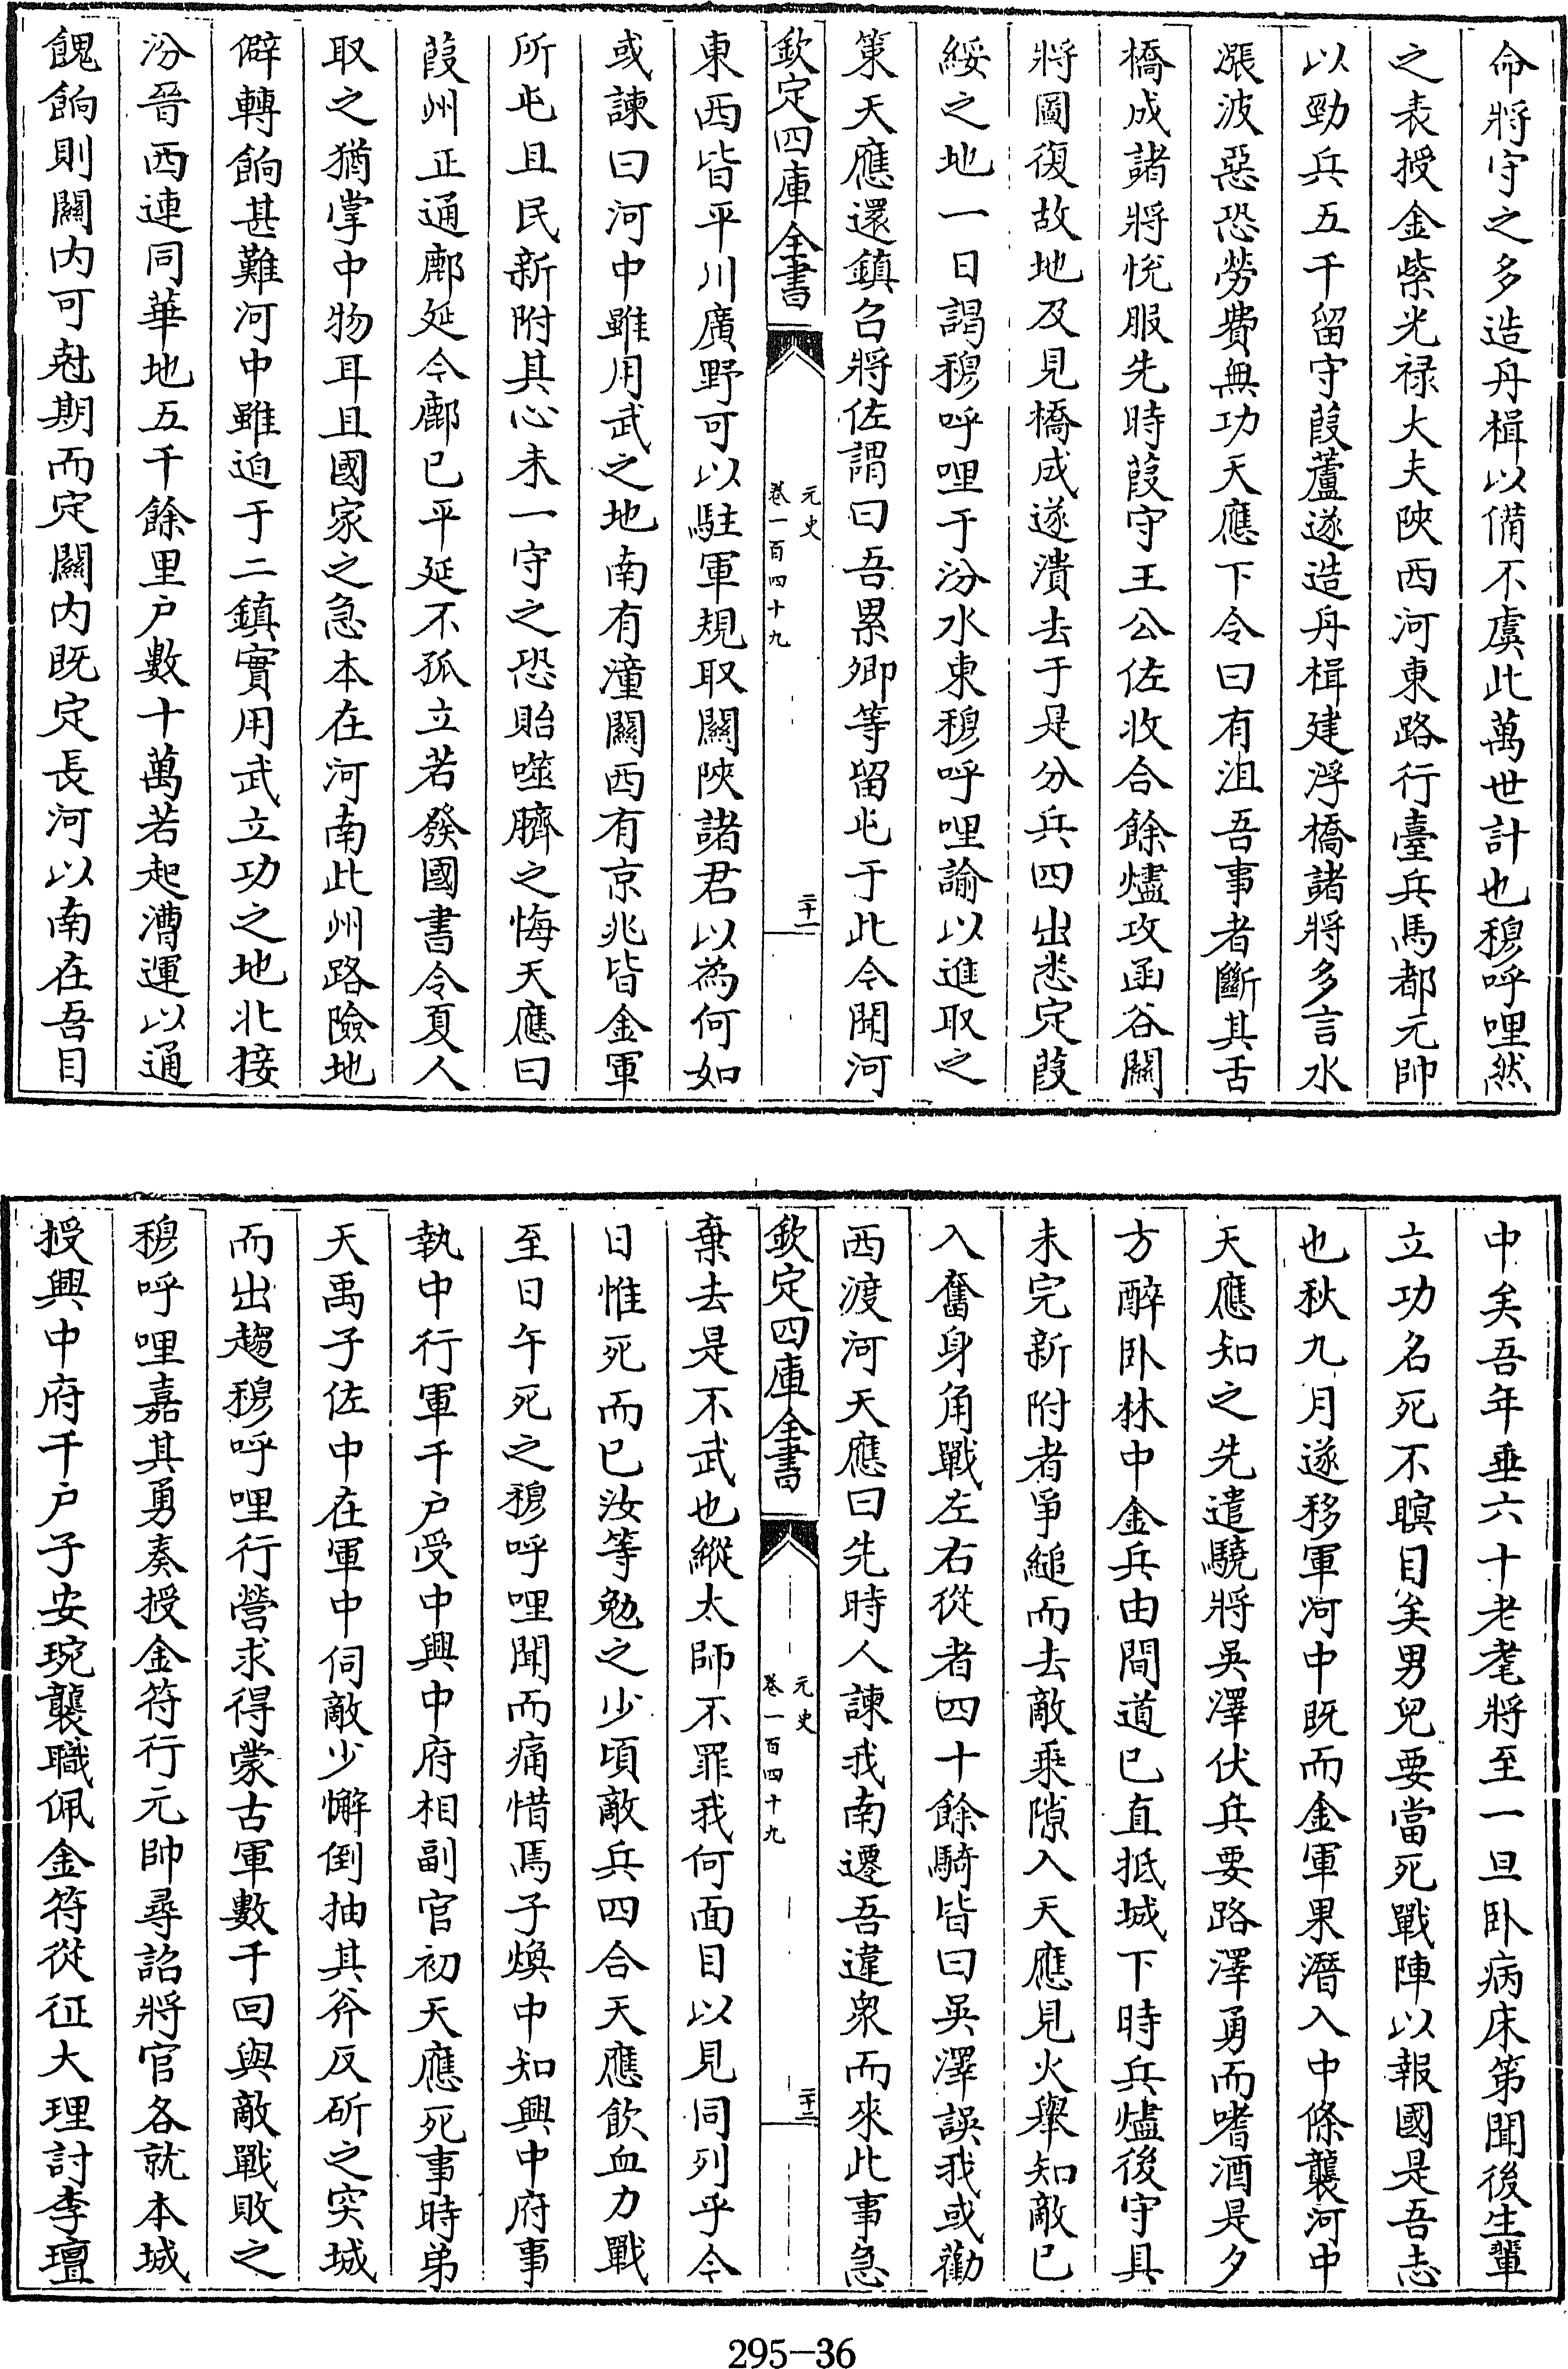 命將守之多造丹楫以備不虞此萬世計也穆呼哩然
之表授金紫光禄大夫陜西河東路行臺兵馬都元帥
以勁兵五千留守葭蘆遂造丹楫建浮橋諸將多言水
漲波惡恐勞費無功天應下令曰有沮吾事者斷其舌
橋成諸將悦服先時葭守王公佐收合餘燼攻函谷關
將圖復故地及見橋成遂潰去于是分兵四出悉定葭
綏之地一日謁穆呼哩于汾水東穆呼哩諭以進取之
策天應還鎮召將佐謂曰吾累卿等留屯于此今聞河
欽定四庫全書
元史
卷一百四十九
二十一
東西皆平川廣野可以駐軍規取關陜諸君以為何如
或諫曰河中雖用武之地南有潼關西有京兆皆金軍
所屯且民新附其心未一守之恐貽噬臍之悔天應曰
葭州正通鄜延今鄜已平延不孤立若發國書令夏人
取之猶掌中物耳且國家之急本在河南此州路險地
僻轉餉甚難河中雖迫于二鎮實用武立功之地北接
汾晉西連同華地五千餘里户數十萬若起漕運以通
餽餉則關内可尅期而定關内既定長河以南在吾目
中矣吾年垂六十老耄將至一旦卧病床第聞後生輩
立功名死不瞑目矣男兒要當死戰陣以報國是吾志
也秋九月遂移軍河中既而金軍果潛入中條襲河中
天應知之先遣驍將吳澤伏兵要路澤勇而嗜酒是夕
方醉卧林中金兵由間道已直抵城下時兵燼後守具
未完新附者爭縋而去敵乘隙入天應見火舉知敵已
入奮身角戰左右從者四十餘騎皆曰吳澤誤我或勸
西渡河天應曰先時人諫我南遷吾違衆而來此事急
欽定四庫全書
元史
卷一百四十九
二十二
棄去是不武也縱太師不罪我何面目以見同列乎今
日惟死而已汝等勉之少頃敵兵四合天應飲血力戰
至日午死之穆呼哩聞而痛惜焉子煥中知興中府事
執中行軍千户受中興中府相副官初天應死事時弟
天禹子佐中在軍中伺敵少懈倒抽其斧反斫之突城
而出趨穆呼哩行營求得蒙古軍數千回與敵戰敗之
穆呼哩嘉其勇奏授金符行元帥尋詔將官各就本城
授興中府千户子安琬襲職佩金符從征大理討李璮
295-36